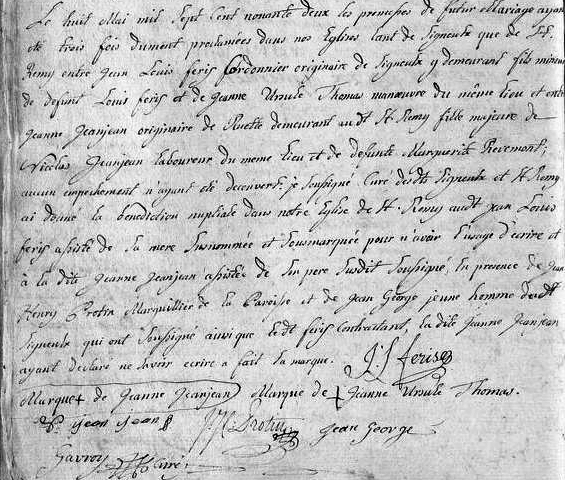 Le huit Mai mil sept cent nonante deux les promesses de futur Mariage ayant
été trois fois dument proclamées dans nos Eglises tant de Signeulx que de St
Remy entre Jean Louis feris Cordonnier originaire de Signeulx y demeurant fils mineur
de defunt Louis feris et de Jeanne Ursule Thomas manœuvre du même lieu et entre
Jeanne Jeanjean originaire de Ruette demeurant audt St Remy fille majeure de
Nicolas Jeanjean laboureur du meme lieu et de defunte Marguerite Prevemont;
aucun empechement n'ayant été decouvert; je soussigné Curé desdts Signeulx et St Remy
ai donné la benediction nuptiale dans notre Eglise de St Remy audt Jean Louis
feris assisté de sa mere susnommée et sousmarquée pour n'avoir l'usage d'écrire et
à la dite Jeanne Jeanjean assistée de son pere susdit soussigné, en presence de Jean
Henry Protin Marguillier de la Paroisse et de Jean George jeune homme dudt
Signeulx qui ont soussigné ainsi que ledt feris Contractant, la dite Jeanne Jeanjean
ayant declaré ne savoir ecrire a fait sa marque. J: L feris
Marque + de Jeanne Jeanjean Marque de + Jeanne Ursule Thomas.
N: jean jean J H Protin Jean George
Gavroy Curé